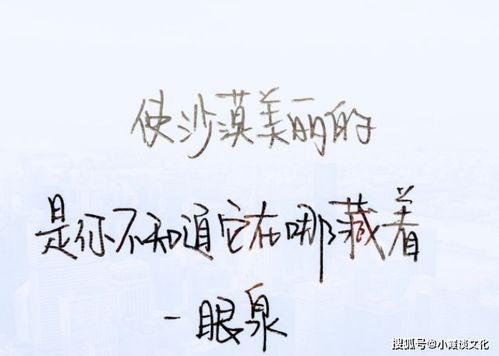 使沙漠美丽的
是你不知道它在哪藏着
一眼泉
搜狐号@小谈文化